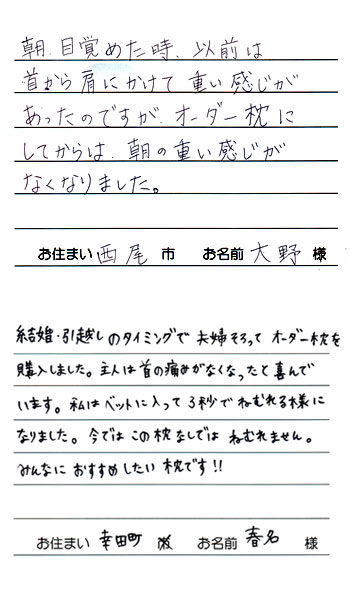 朝、目覚めた時、以前は
首から肩にかけて重い感じが
あったのですが、オーダー枕に
してからは、朝の重い感じが
なくなりました。
お住まい 西尾 市 お名前 大野 様
結婚・引越しのタイミングで 夫婦そろって オーダー枕を
購入しました。主人は首の痛みがなくなったと喜んで
います。私はベットに入って3秒でねむれる様に
なりました。今では この枕なしでは ねむれません。
みんなに おすすめしたい 枕です!!
お住まい 幸田町 お名前 春名 様